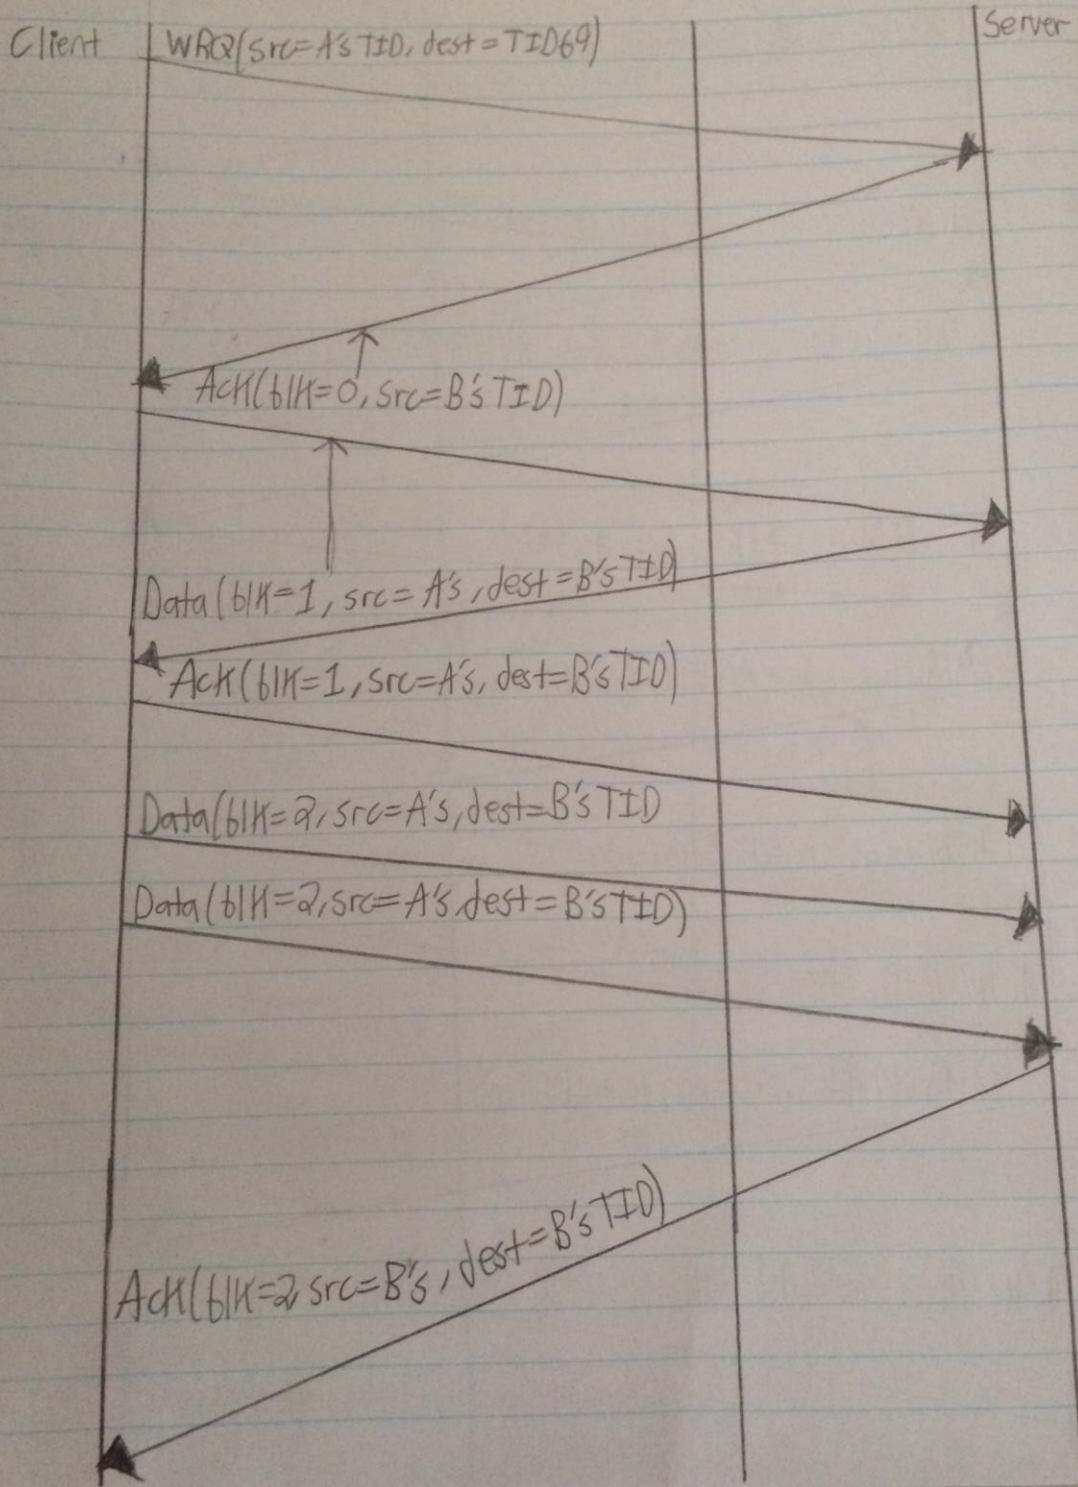 Client
WRQ(src=A's TID, dest=TID69)
Server
Ack(blk=0, src=B's TID)
Data(blk=1, src=A's, dest=B's TID)
Ack(blk=1, src=A's, dest=B's TID)
Data(blk=2, src=A's, dest=B's TID
Data(blk=2, src=A's dest=B's TID)
Ack(blk=2 src=B's, dest=B's TID)